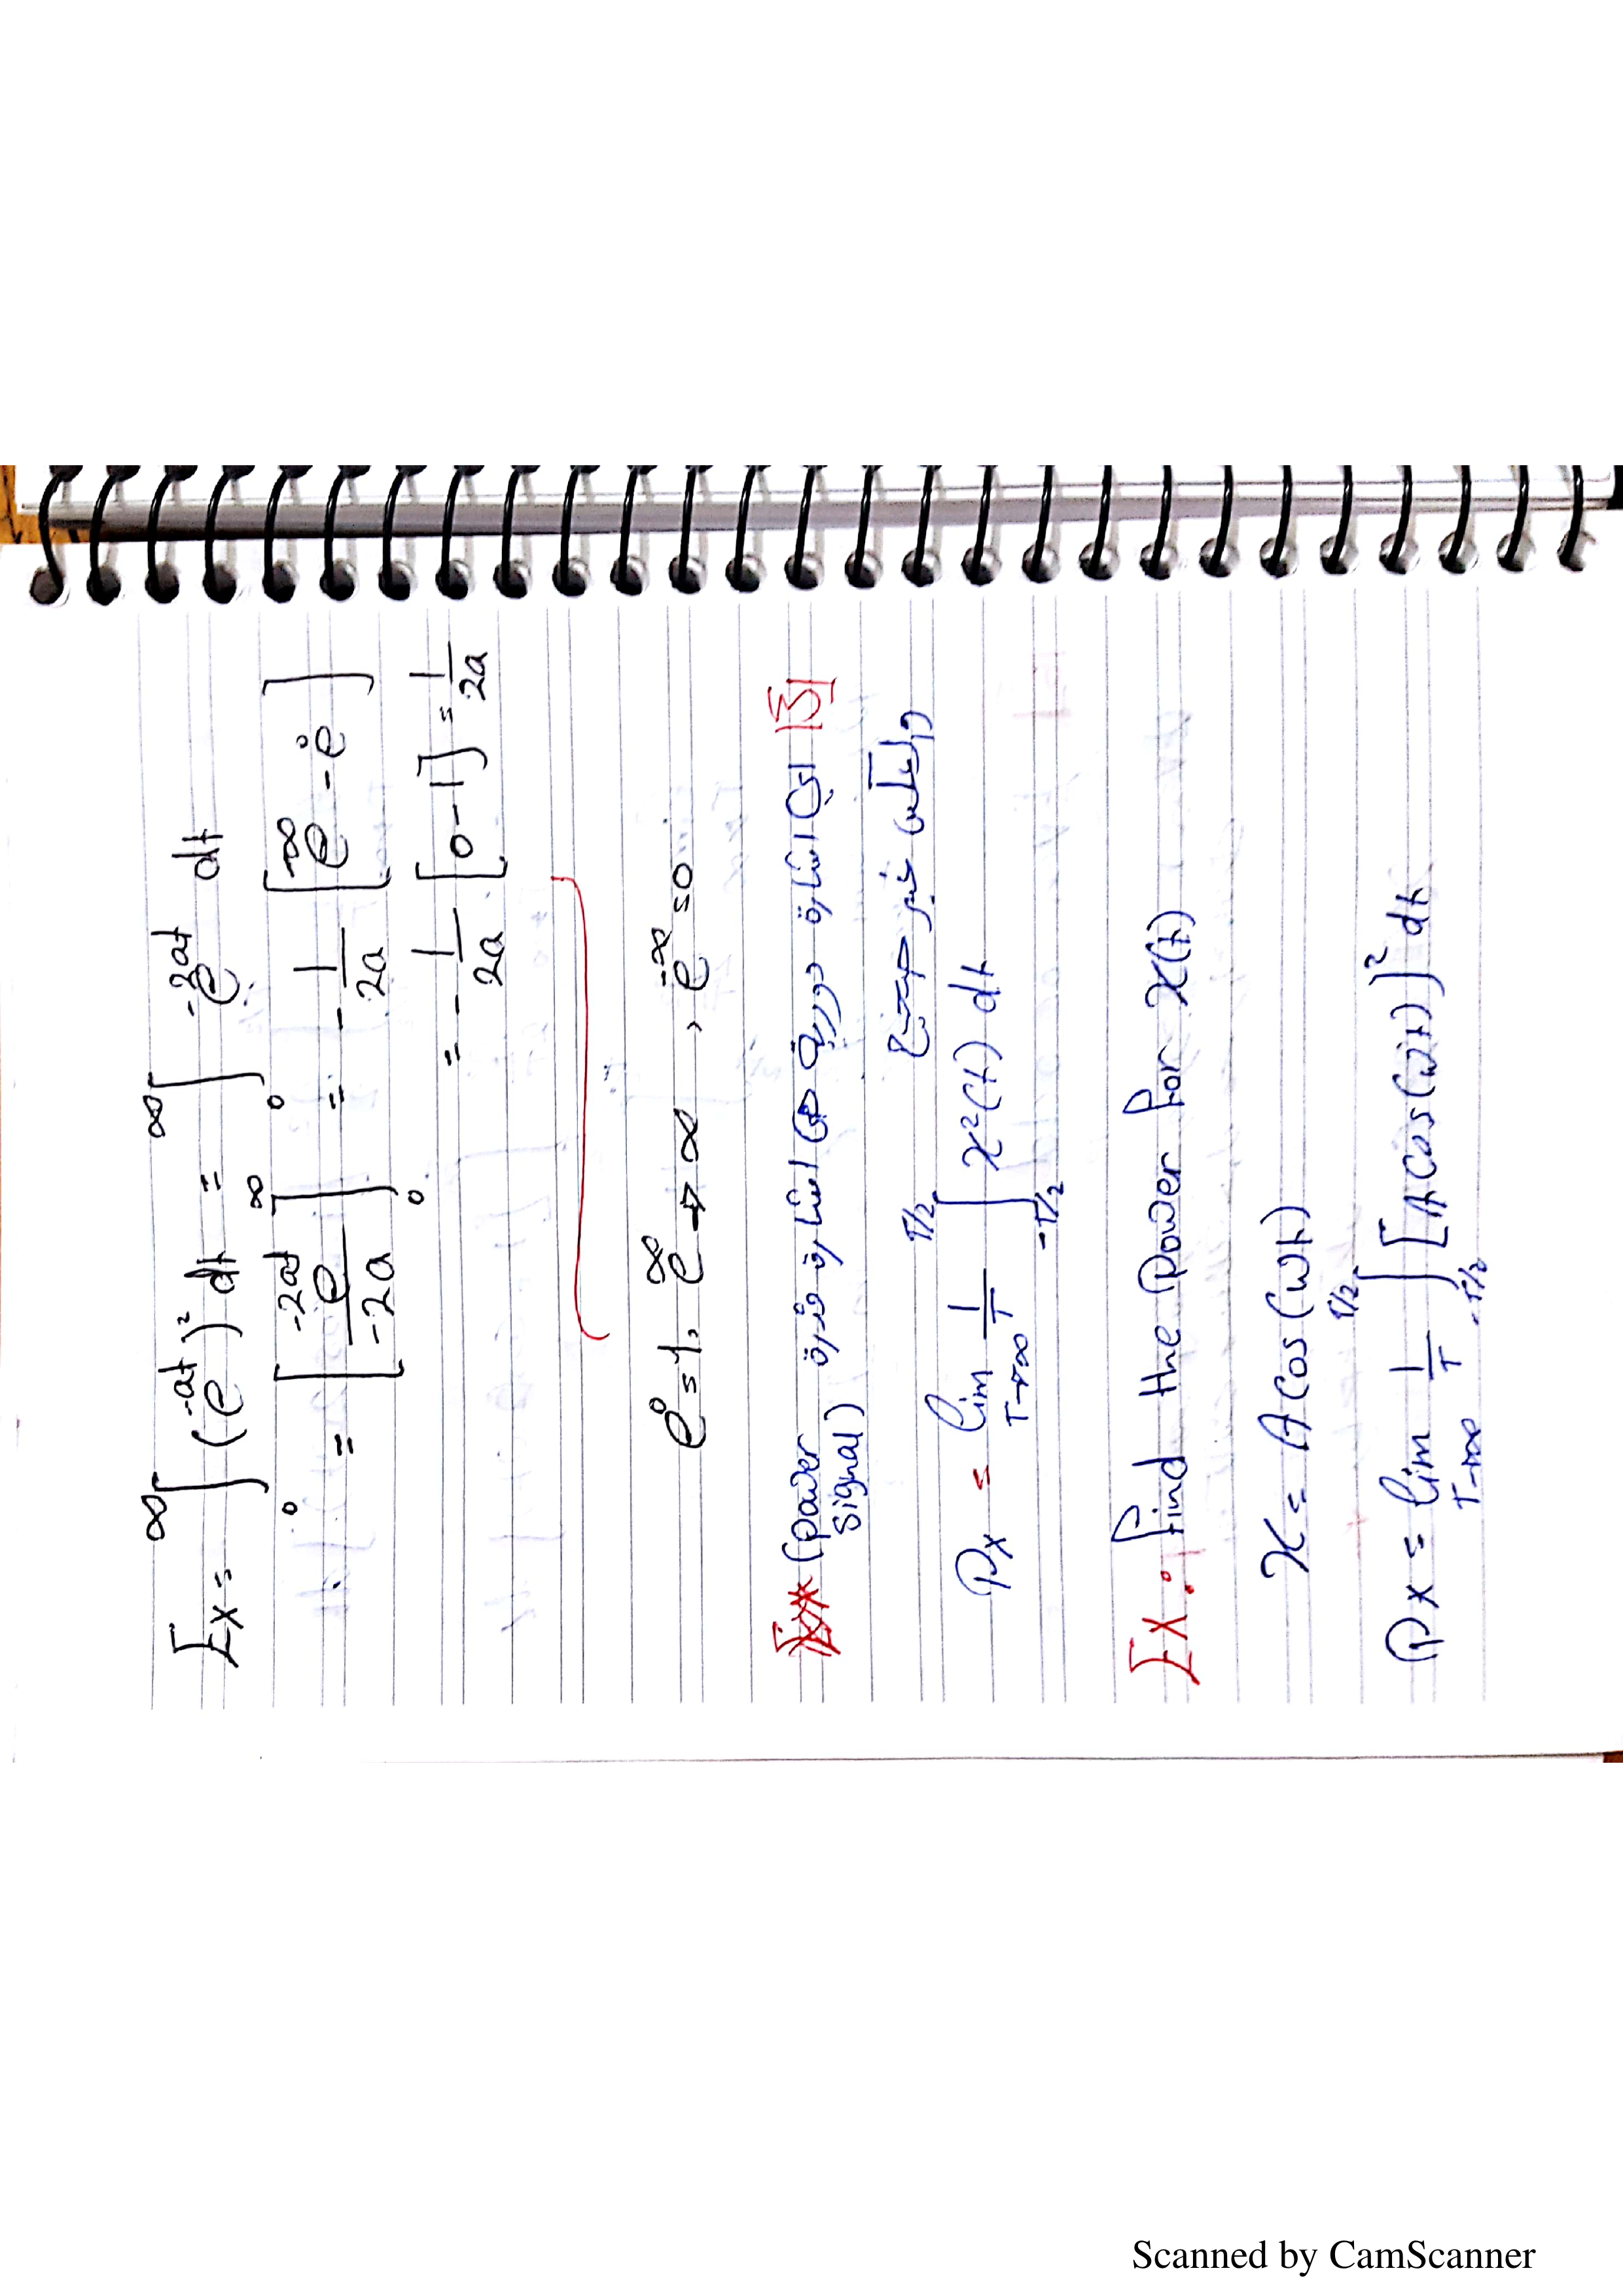 Ex = ∫₀^∞ (e^-at)² dt = ∫₀^∞ e^-2at dt
= [e^-2at / -2a]₀^∞ = -1/2a [e^-∞ - e^0]
= -1/2a [0-1] = 1/2a
e^0 = 1, e^∞ → ∞, e^-∞ = 0
(power signal) أي إشارة دورية هي إشارة قدرة
والعكس غير صحيح
Px = lim T→∞ 1/T ∫_-T/2^T/2 x²(t) dt
Ex: Find the power for x(t)
x = A cos(wt)
Px = lim T→∞ 1/T ∫_-T/2^T/2 [A cos(wt)]² dt
Scanned by CamScanner